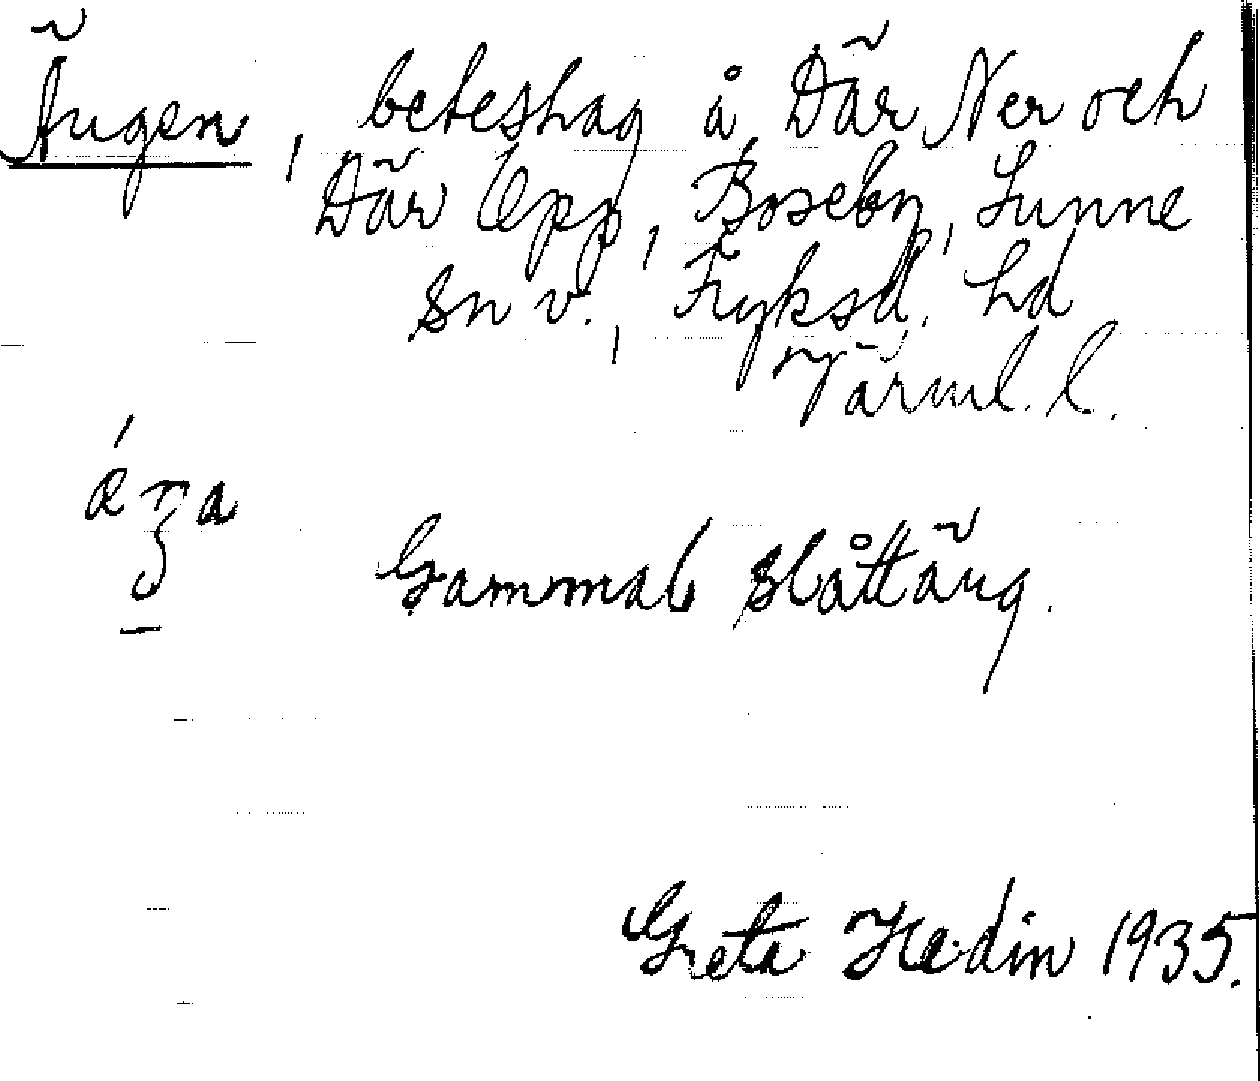 Ängen, beteshag å Där Ner och
Där Opp, Boseby, Sunne
sn v., Fryksd. hd
Värml. l.
Gammal slåttäng.
Greta Hedin 1935.